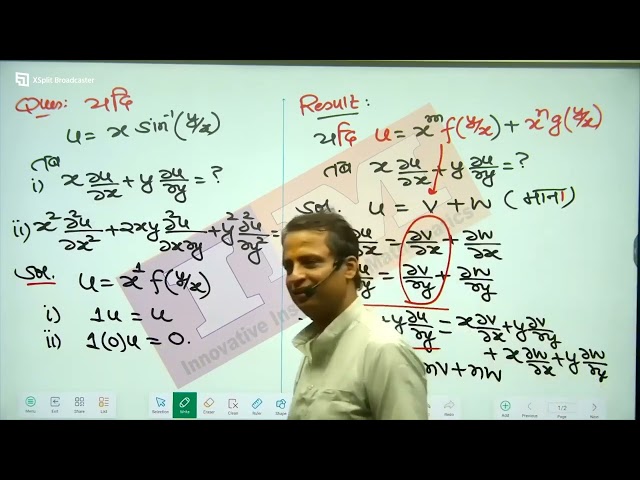 XSplit Broadcaster
Ques: यदि
u = x sin⁻¹(y/x)
तब
i) x ∂u/∂x + y ∂u/∂y = ?
ii) x² ∂²u/∂x² + 2xy ∂²u/∂x∂y + y² ∂²u/∂y² =
Sol. u = x¹ f(y/x)
i) 1u = u
ii) 1(0)u = 0.
Result:
यदि u = xᵐ f(y/x) + xⁿ g(y/x)
तब x ∂u/∂x + y ∂u/∂y = ?
Sol. u = v + w (माना)
∂x = ∂v/∂x + ∂w/∂x
∂y = ∂v/∂y + ∂w/∂y
y ∂u/∂y = x ∂v/∂x + y ∂v/∂y
+ x ∂w/∂x + y ∂w/∂y
mv + nw
Innovative Ins
Menu Exit Sources List Selection Write Eraser Clear Ruler Shape Redo Add Previous 1/2 Next